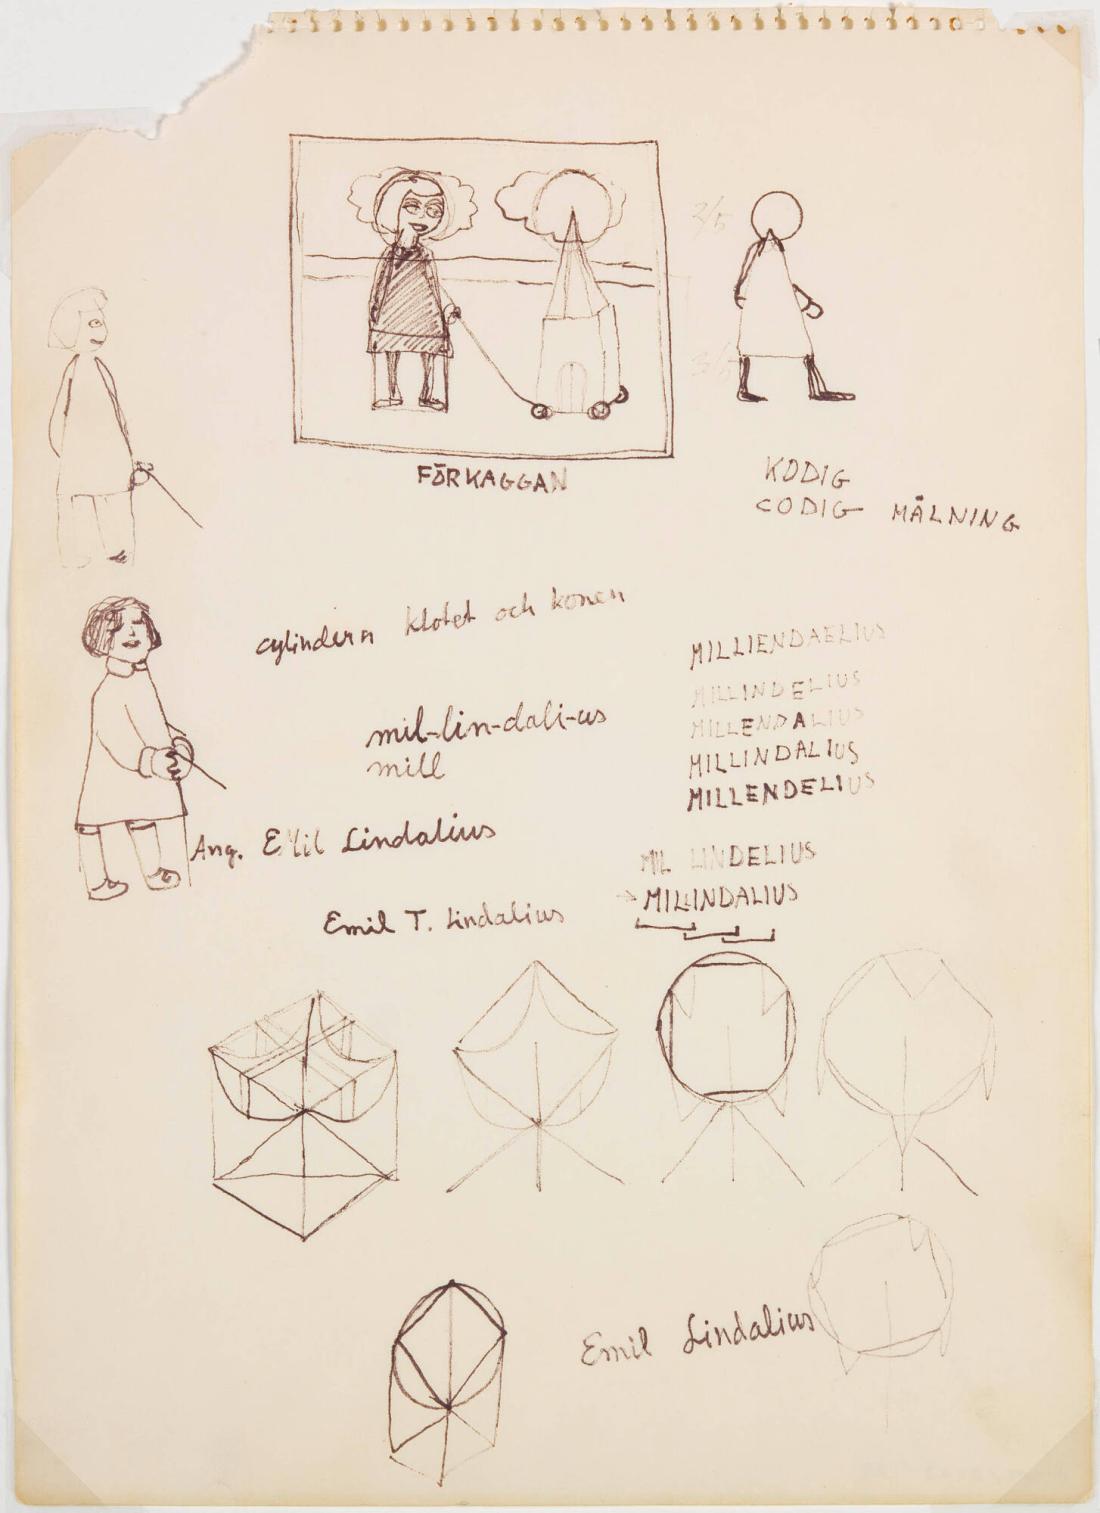 2/5
3/5
FÖRKAGGAN
KODIG
CODIG MÅLNING
cylindern klotet och konen
mil-lin-dali-us
mill
MILLIENDAELIUS
MILLINDELIUS
MILLENDALIUS
MILLINDALIUS
MILLENDELIUS
Ang. EMil Lindalius
MIL LINDELIUS
→ MILLINDALIUS
Emil T. Lindalius
Emil Lindalius